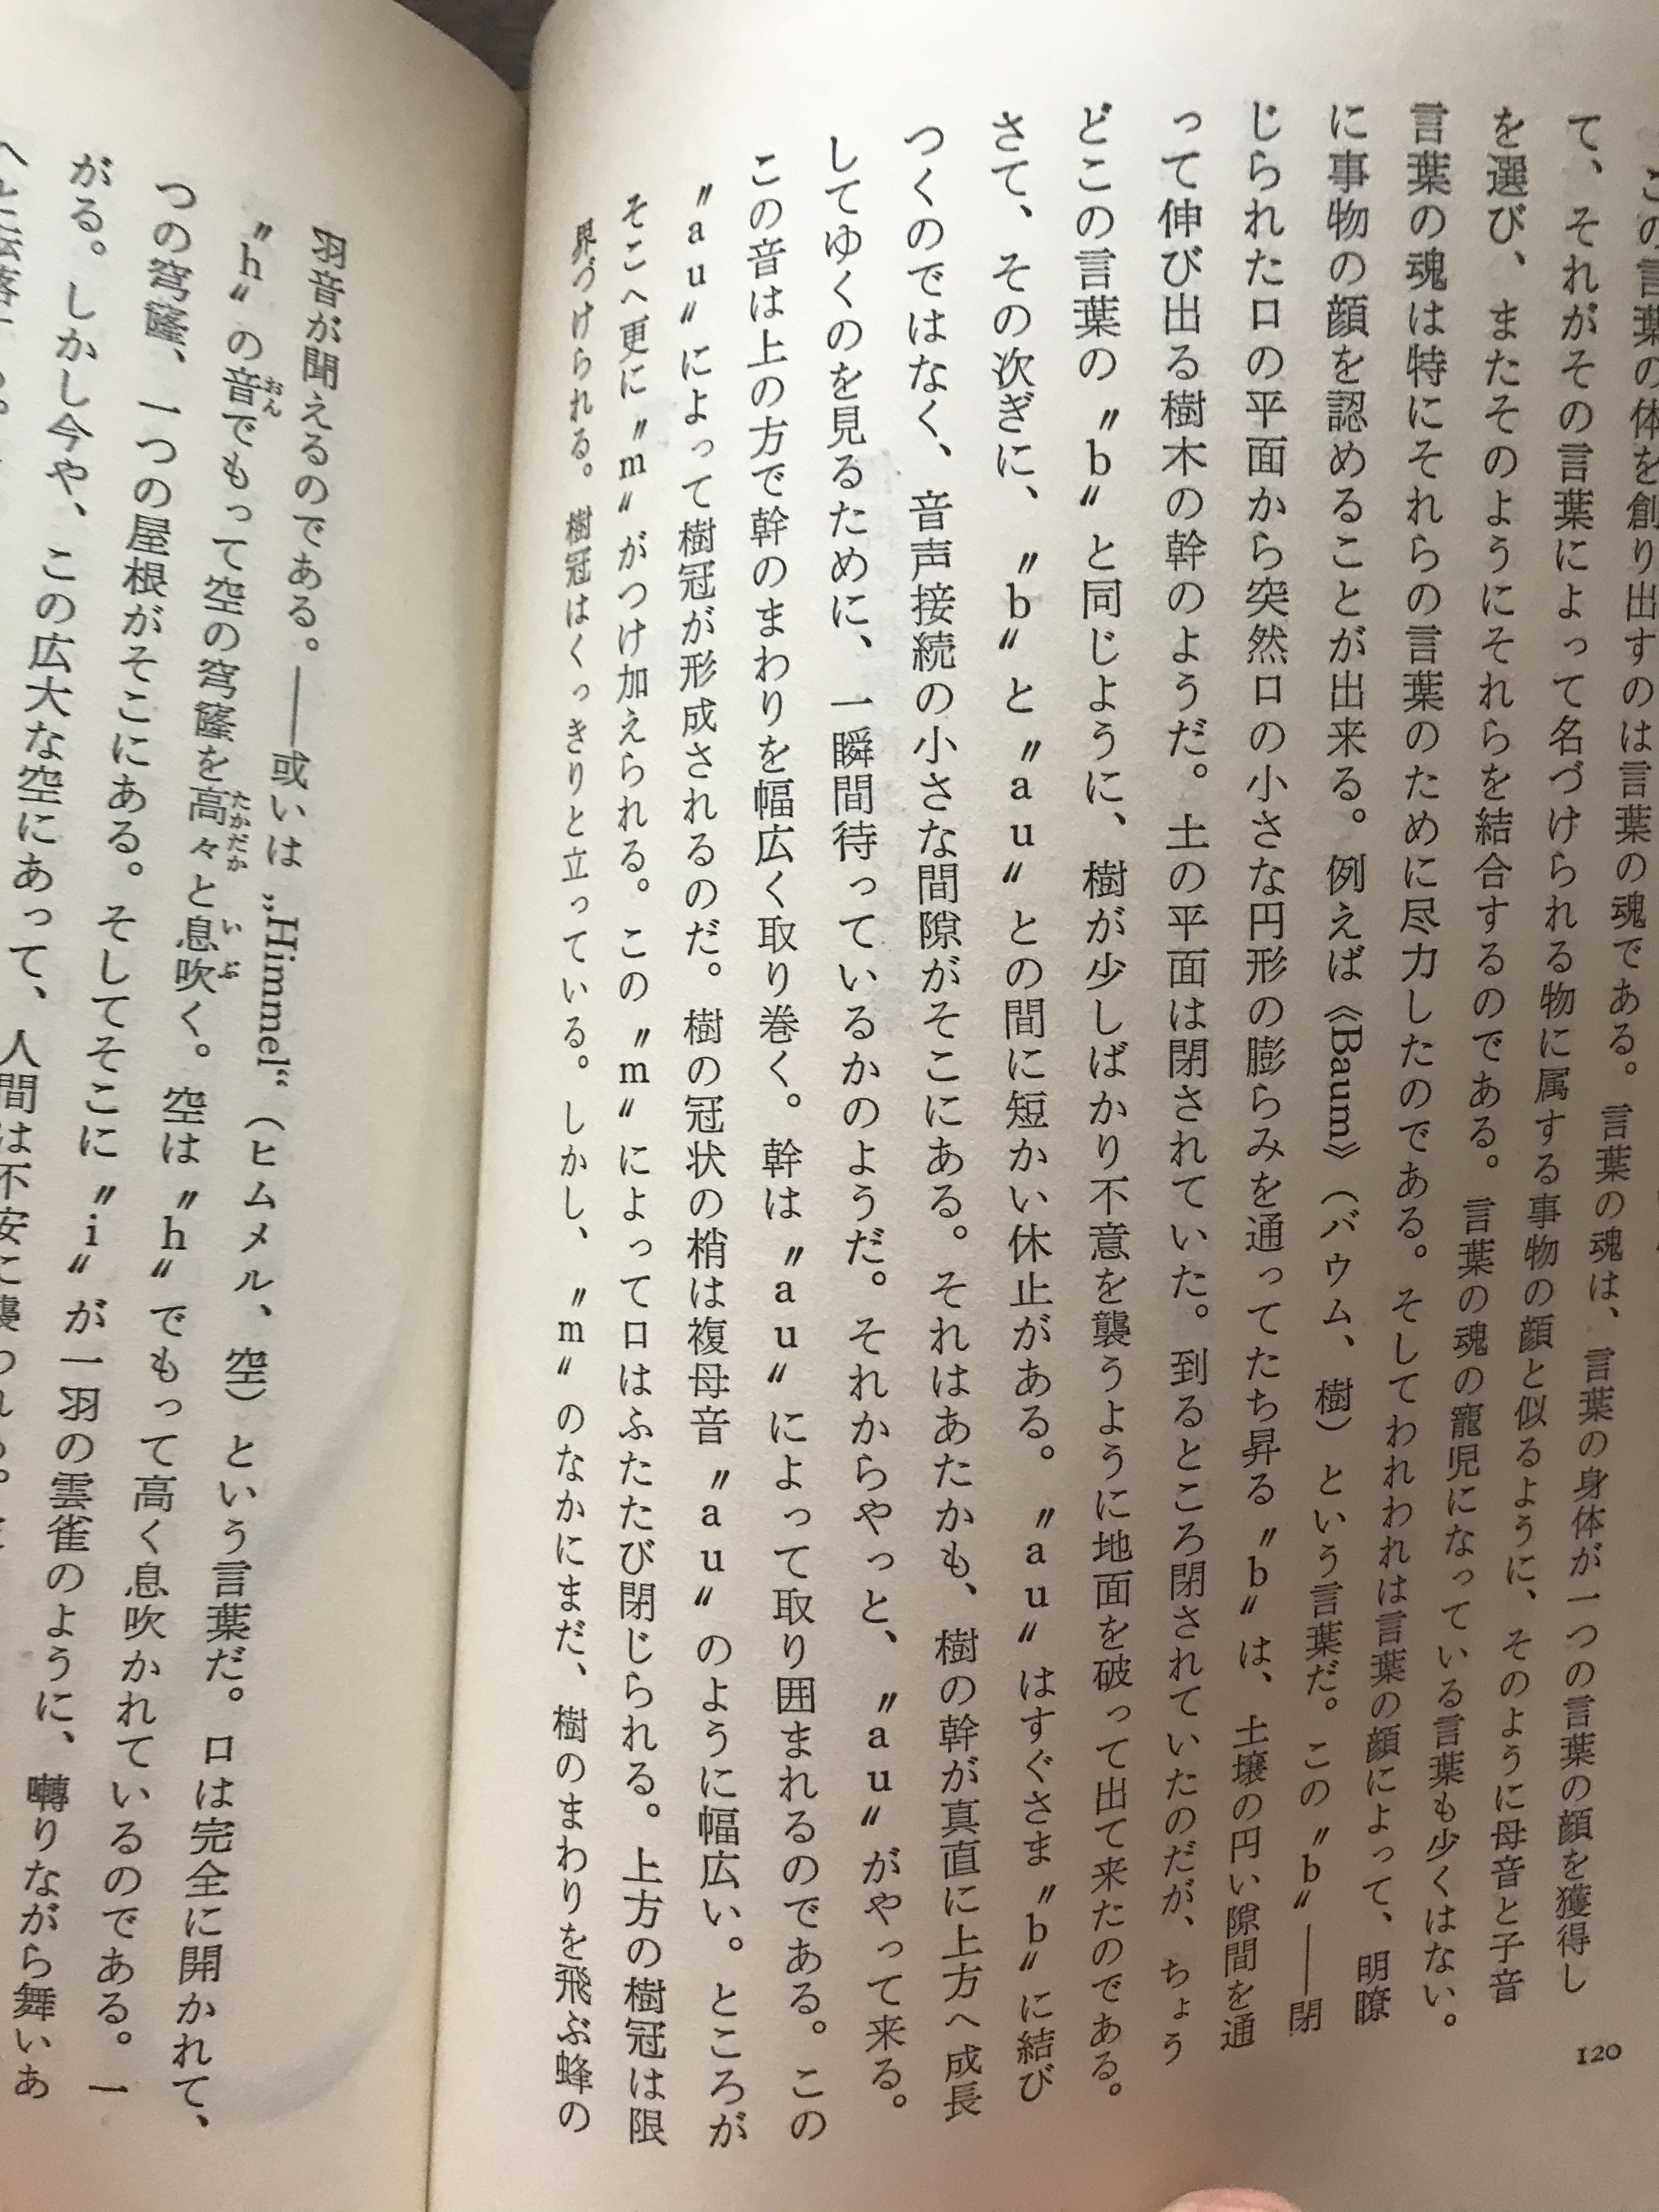 この言葉の体を創り出すのは言葉の魂である。言葉の魂は、言葉の身体が一つの言葉の顔を獲得し
て、それがその言葉によって名づけられる物に属する事物の顔と似るように、そのように母音と子音
を選び、またそのようにそれらを結合するのである。言葉の魂の寵児になっている言葉も少くはない。
言葉の魂は特にそれらの言葉のために尽力したのである。そしてわれわれは言葉の顔によって、明瞭
に事物の顔を認めることが出来る。例えば《Baum》(バウム、樹)という言葉だ。この〝b〟――閉
じられた口の平面から突然口の小さな円形の膨らみを通ってたち昇る〝b〟は、土壌の円い隙間を通
って伸び出る樹木の幹のようだ。土の平面は閉されていた。到るところ閉されていたのだが、ちょう
どこの言葉の〝b〟と同じように、樹が少しばかり不意を襲うように地面を破って出て来たのである。
さて、その次ぎに、〝b〟と〝au〟との間に短かい休止がある。〝au〟はすぐさま〝b〟に結び
つくのではなく、音声接続の小さな間隙がそこにある。それはあたかも、樹の幹が真直に上方へ成長
してゆくのを見るために、一瞬間待っているかのようだ。それからやっと、〝au〟がやって来る。
この音は上の方で幹のまわりを幅広く取り巻く。幹は〝au〟によって取り囲まれるのである。この
〝au〟によって樹冠が形成されるのだ。樹の冠状の梢は複母音〝au〟のように幅広い。ところが
そこへ更に〝m〟がつけ加えられる。この〝m〟によって口はふたたび閉じられる。上方の樹冠は限
界づけられる。樹冠はくっきりと立っている。しかし、〝m〟のなかにまだ、樹のまわりを飛ぶ蜂の
120
羽音が聞えるのである。――或いは „Himmel“(ヒムメル、空)という言葉だ。口は完全に開かれて、
〝h〟の音おんでもって空の穹窿を高々たかだかと息吹いぶく。空は〝h〟でもって高く息吹かれているのである。一
つの穹窿、一つの屋根がそこにある。そしてそこに〝i〟が一羽の雲雀のように、囀りながら舞いあ
がる。しかし今や、この広大な空にあって、人間は不安に襲われる。